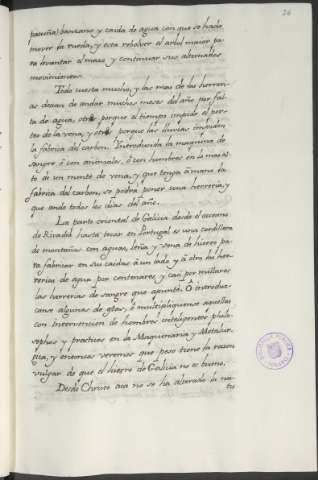 26
pequeña) barranco, y caida de agua con que se hade
mover la rueda, y esta rebolver el arbol mayor pa
ra levantar el mazo y continuar sus alternados
movimientos.
Todo cuesta mucho, y las mas de las herreri
as dexan de andar muchos meses del año por fal
ta de agua, otras porque el tiempo impide el por
teo de la vena, y otras porque las lluvias impiden
la fabrica del carbon. Introducida la maquina de
sangre ó con animales, ó con hombres en lo mas al
to de un monte de vena, y que tenga á mano la
fabrica del carbon, se podrá poner una herreria, y
que ande todos los dias del año.
La parte oriental de Galicia desde el oceano
de Rivadeo hasta tocar en Portugal es una cordillera
de montañas con aguas, leña, y vena de hierro pa
ra fabricar en sus caidas á un lado, y á otro las her
rerias de agua por centenares, y casi por millares
las herrerias de sangre que apunté. Ó introduz
canse algunas de estas, ó multipliquense aquellas
con intervencion de hombres inteligentes philo
sophos y practicos en la Maquinaria y Metalur
gica, y entonces veremos que peso tiene la razon
vulgar de que el hierro de Galicia no es bueno.
Desde Christo acá no se ha alterado la na
tu